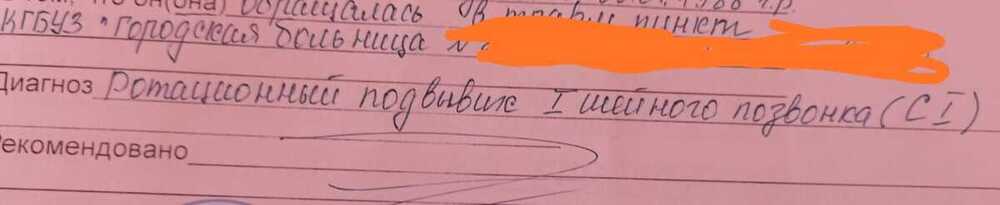 что он(она) обращалась в травм пункт
КГБУЗ "Городская больница №
Диагноз Ротационный подвывих I шейного позвонка (CI)
Рекомендовано